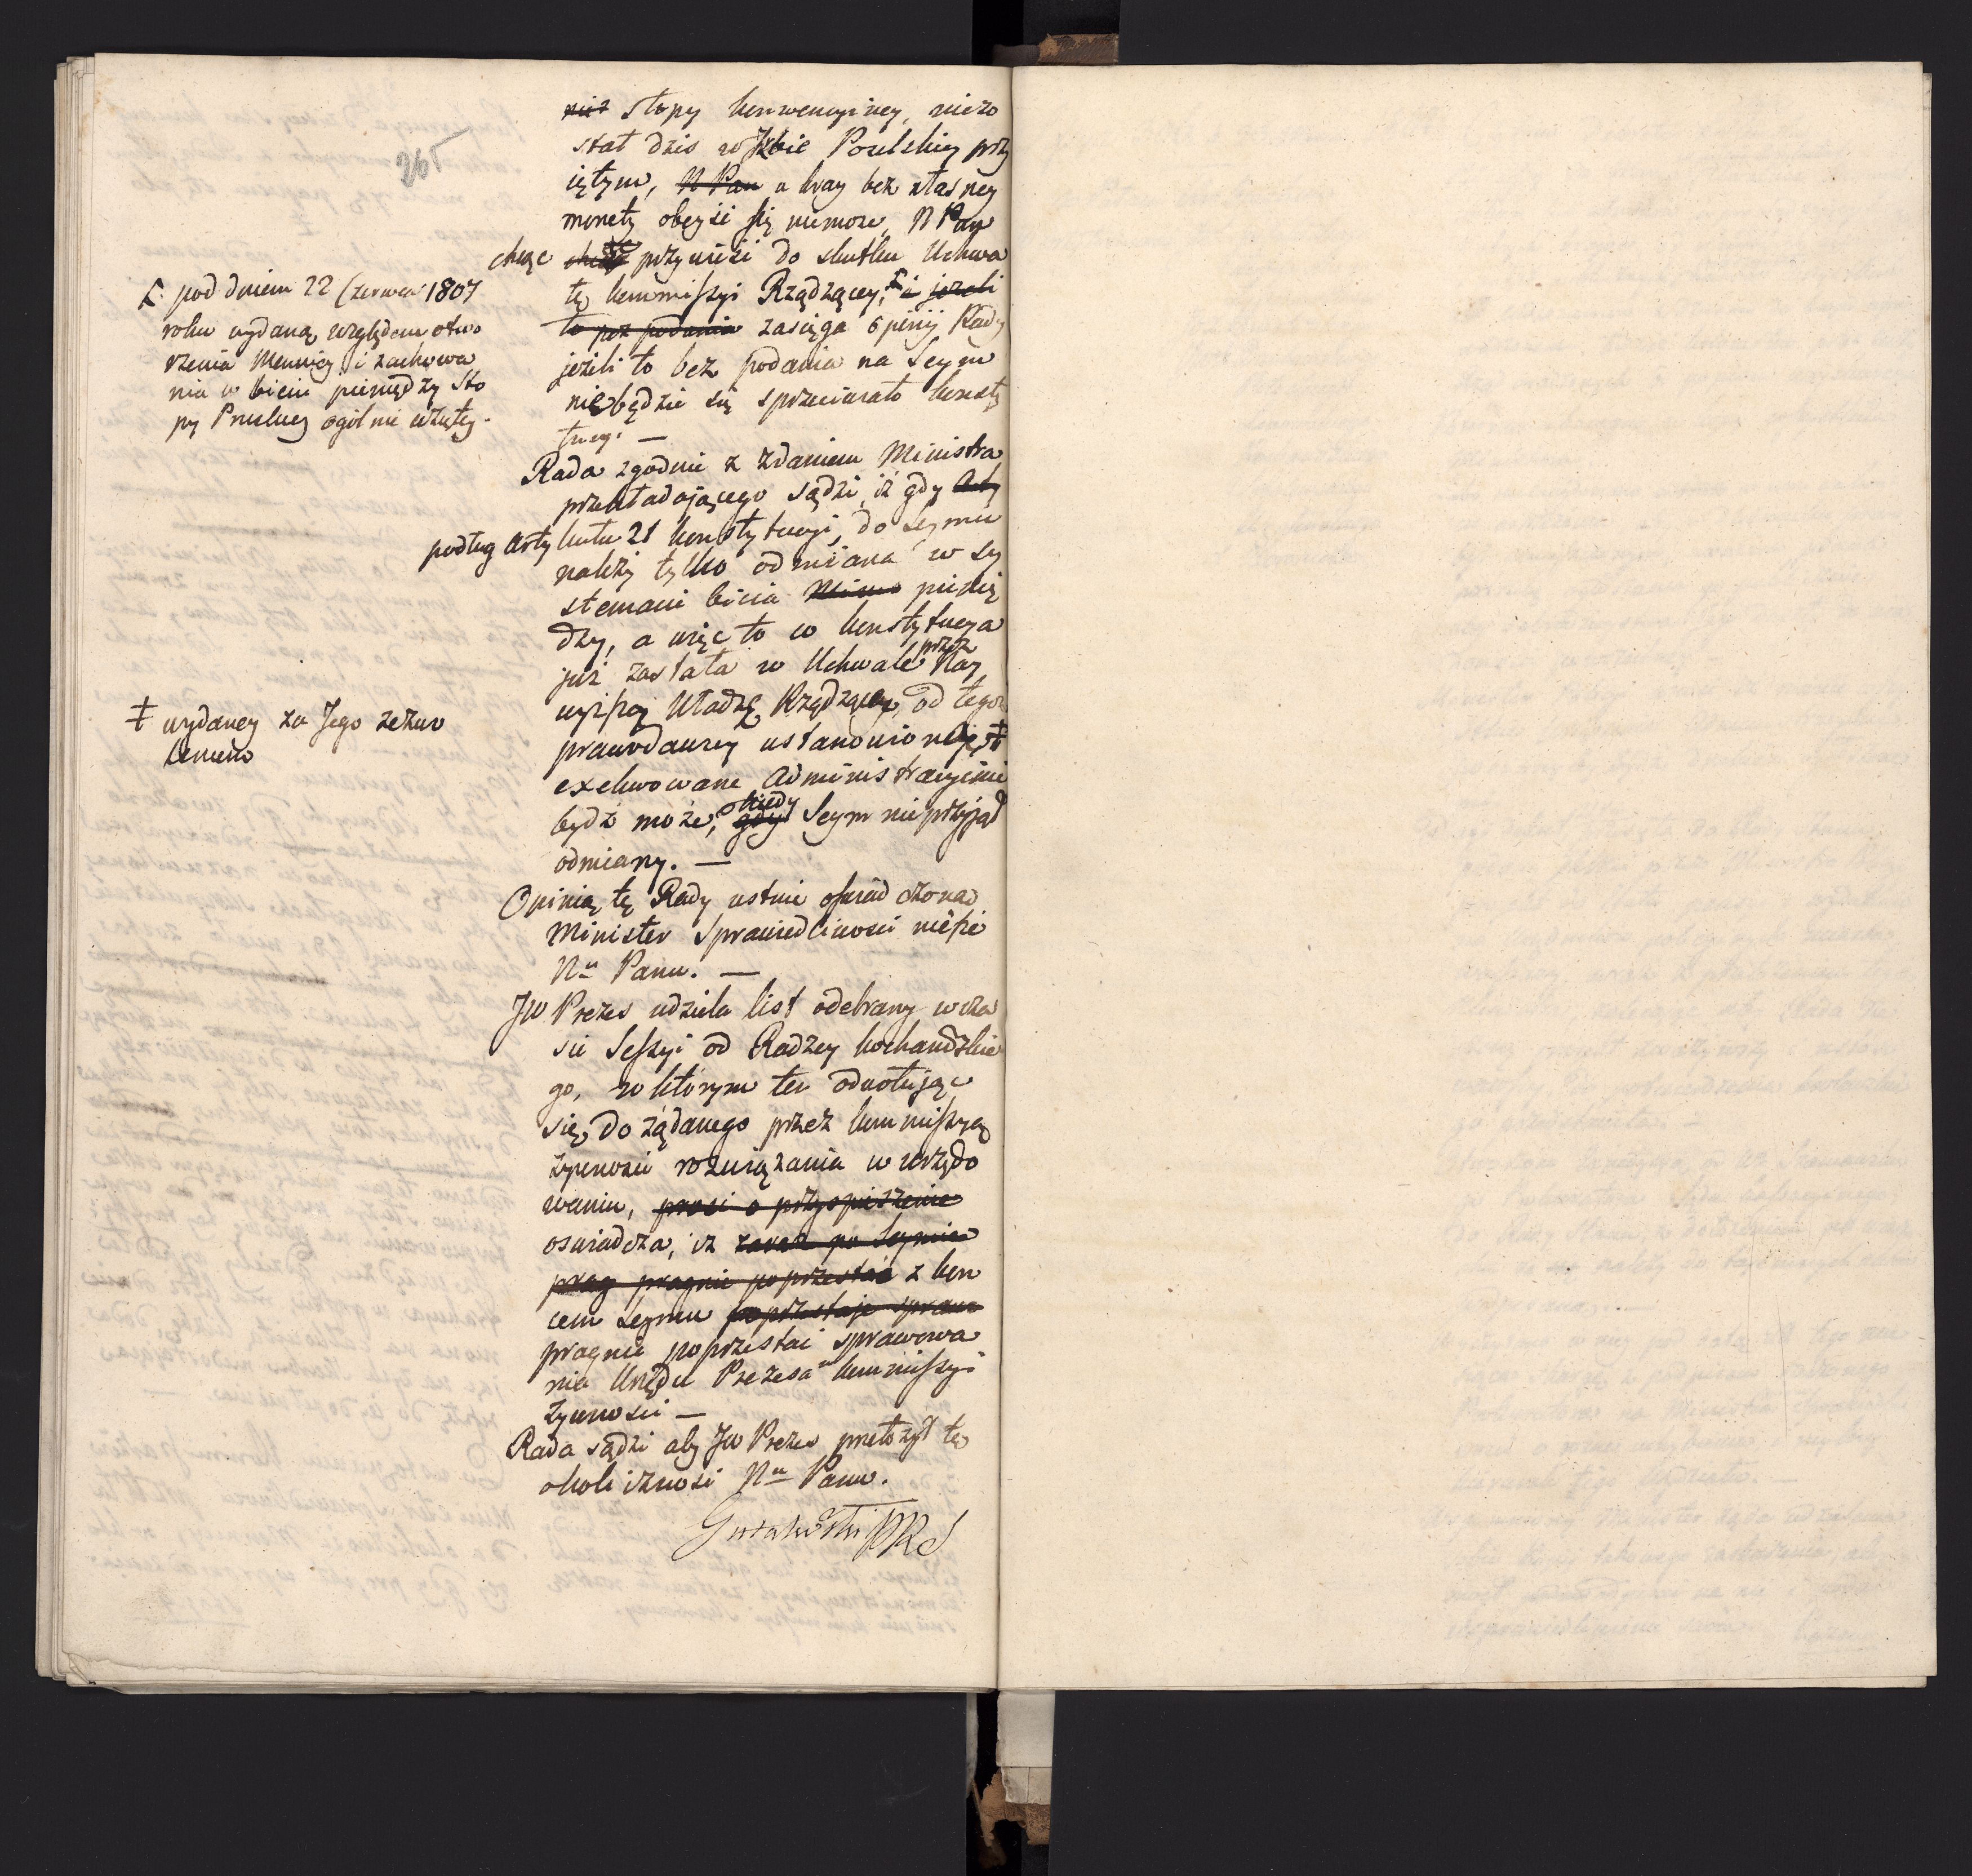 265
niż stopy konwencyiney, niezo
stał dzis w Jzbie Poselskiey przy
iętym, N Pan a kray bez własney
monety obeyść się niemoże, N Pan
chcąc przywieść do skutku Uchwa
łę Kommiszyi Rządzącey, i jeżeli
to bez podania zasięga opinij Rady
jeżeli to bez podania na Seym
niebędzie się sprzeciwiało konsty
tucyi. —
pod dniem 22 Czerwca 1807
roku wydaną względem otwo
rzenia Mennicy i zachowa
nia w biciu pieniędzy sto
py Pruskiey ogólnie wziętey.
Rada zgodnie z zdaniem Ministra
przekładającego sądzi, iż gdy Arty
podług Arty kułu 21 konstytucyi, do Seymu
należy tylko odmiana w sy
stemacie bicia pienię
dzy, a więc to co konstytucya
już zastała w Uchwale przez Nay
wyższą Władzę Rządzącą, od tegoż
prawodawcy ustanowioney ‡
exekwowane Administracyinie
bydź może, gdy kiedy Seym nieprzyjął
odmiany. —
‡ wydaney za Jego zezwo
leniem
Opinią tę Rady ustnie oświadczoną
Minister Sprawiedliwości niesie
Nu Panu. —
JW Prezes udziela list odebrany w cza
sie Seszyi od Radzcy Kochanowskie
go, w którym ten odwołując
się do żądanego przez Kommiszyą
żywności rozwiązania w urzędo
waniu, prosi o przyspieszenie
oswiadcza, iż zaraz po Seymie
prag pragnie poprzestać z koń
cem Seymu poprzestaje spraw
pragnie poprzestać sprawowa
nia Urzędu Prezesa Kommiszyi
żywności —
Rada sądzi aby JW Prezes przełożył tę
okoliczność Nu Panu.
Gutakowski PRS